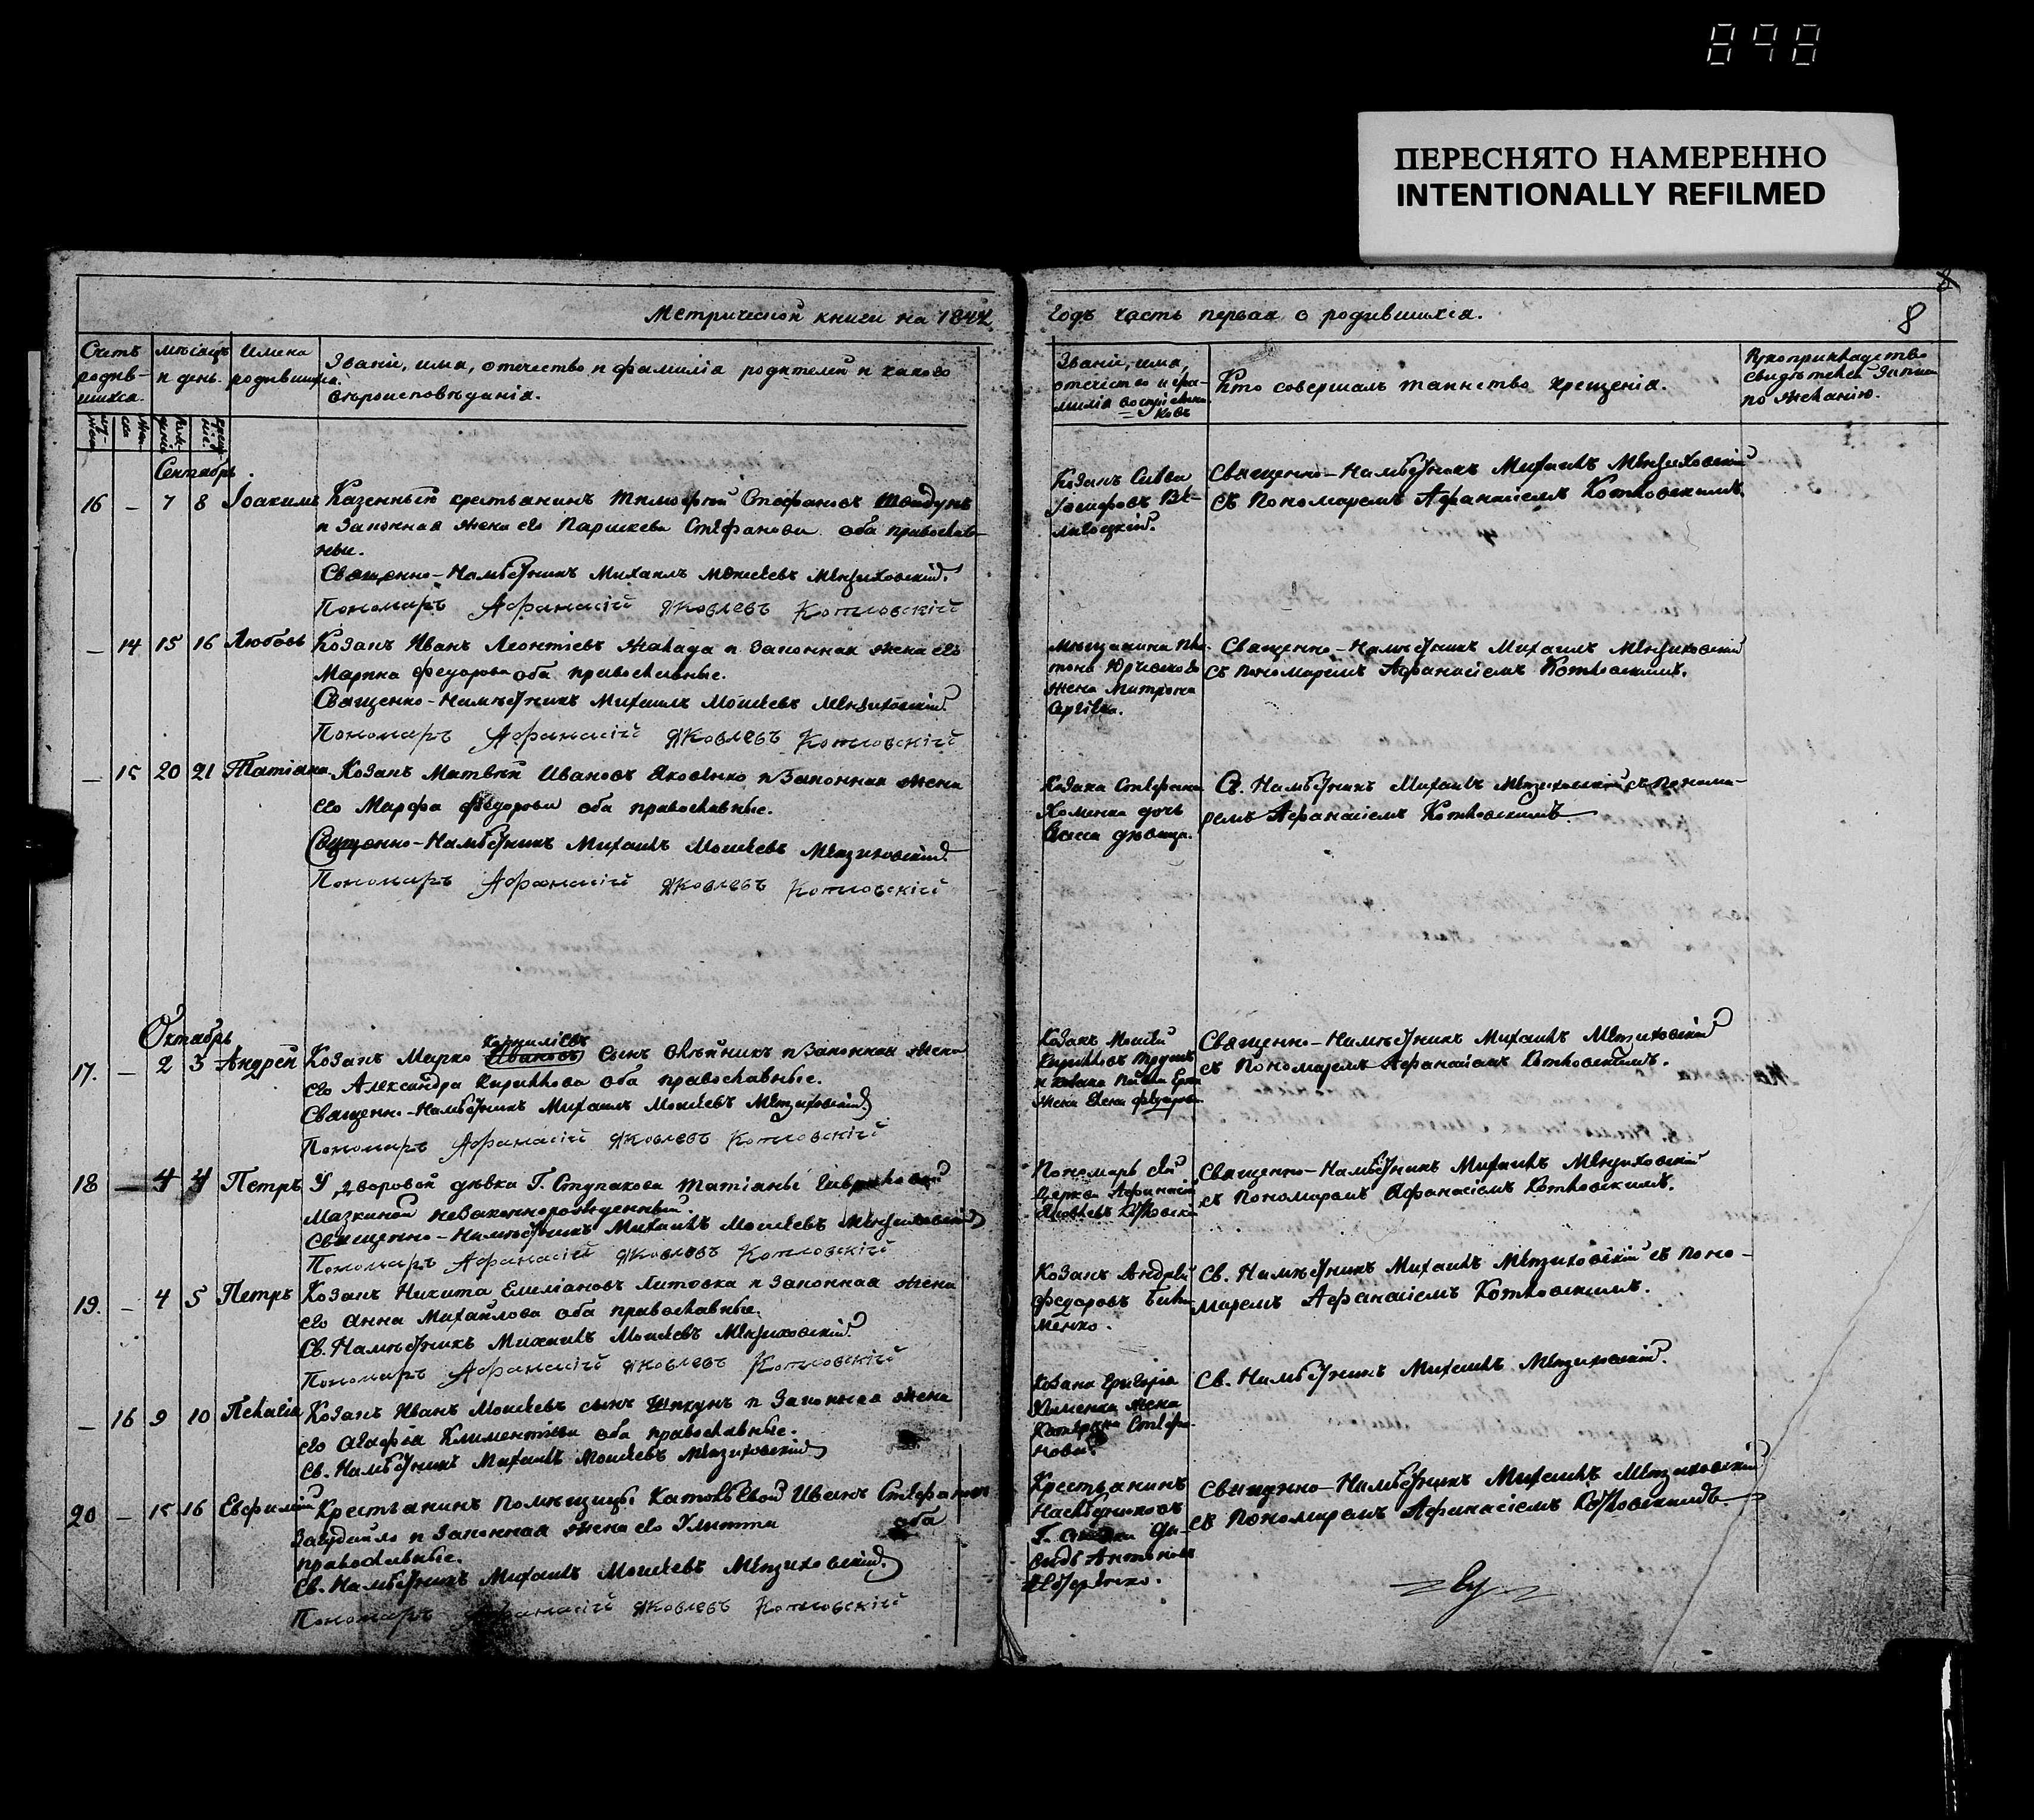 898
ПЕРЕСНЯТО НАМЕРЕННО
INTENTIONALLY REFILMED
8
Метрической книги на 1842
годъ часть первая о родившихся.
8
Счетъ родив-шихся.
мѣсяцъ и день.
Имена родившихся.
Званіе, имя, отечество и фамилія родителей и какого
вѣроисповѣданія.
Званіе, имя,
отечество и фа-
милія воспріемни-
ковъ
Кто совершалъ таинство крещенія.
Рукоприкладство
свидѣтелей записи
по желанію.
Сентябрь.
16 – 7 8 Іоакимъ Казенный крестьянинъ Тимофей Стефановъ
и законная жена его Параскева Стефанова оба православ-
ные.
Священно-Намѣстникъ Михаилъ Моисеевъ Мензиховскій.
Пономарь Афанасій Яковлевъ Котловскій
Козакъ Савва
Іосифовъ
Священно-Намѣстникъ Михаилъ Мензиховскій
съ Пономаремъ Афанасіемъ Котловскимъ.
– 14 15 16 Любовь Козакъ Иванъ Леонтіевъ и законная жена его
Марина Федорова оба православные.
Священно-Намѣстникъ Михаилъ Моисеевъ Мензиховскій.
Пономарь Афанасій Яковлевъ Котловскій
Мѣщанина
жена Матрона
Сергіева.
Священно-Намѣстникъ Михаилъ Мензиховскій
съ Пономаремъ Афанасіемъ Котловскимъ.
– 15 20 21 Татіана Козакъ Матвѣй Ивановъ Яковенко и законная жена
его Марфа Федорова оба православные.
Священно-Намѣстникъ Михаилъ Моисеевъ Мензиховскій
Пономарь Афанасій Яковлевъ Котловскій
Козака Стефана
Хоменка дочь
Васса дѣвица.
С. Намѣстникъ Михаилъ Мензиховскій съ Понома-
ремъ Афанасіемъ Котловскимъ
Октябрь
17. – 2 3 Андрей Козакъ Марко Корниліевъ Ивановъ сынъ Олѣйникъ и законная жена
его Александра Кириллова оба православные.
Священно-Намѣстникъ Михаилъ Моисеевъ Мензиховскій
Пономарь Афанасій Яковлевъ Котловскій
Козакъ Моисей
Кирилловъ
и козака
жена Елена Федорова
Священно-Намѣстникъ Михаилъ Мензиховскій
съ Пономаремъ Афанасіемъ Котловскимъ.
18 – 4 4 Петръ У дворовой дѣвка Г. Ступакова Татіаны Гавриловой
Мазкиной незаконнорожденный.
Священно-Намѣстникъ Михаилъ Моисеевъ Мензиховскій
Пономарь Афанасій Яковлевъ Котловскій
Пономарь сей
Церкви Афанасій
Яковлевъ
Священно-Намѣстникъ Михаилъ Мензиховскій
съ Пономаремъ Афанасіемъ Котловскимъ.
19. – 4 5 Петръ Козакъ Никита Емиліановъ Литовка и законная жена
его Анна Михайлова оба православные.
Св. Намѣстникъ Михаилъ Моисеевъ Мензиховскій
Пономарь Афанасій Яковлевъ Котловскій
Козакъ Андрей
Федоровъ
Св. Намѣстникъ Михаилъ Мензиховскій съ Поно-
маремъ Афанасіемъ Котловскимъ.
– 16 9 10 Пелагія Козакъ Иванъ Моисеевъ сынъ и законная жена
его Агафія Климентіева оба православные.
Св. Намѣстникъ Михаилъ Моисеевъ Мензиховскій
Козака Григорія
Хоменка жена
Катерина Стефа-
нова.
Св. Намѣстникъ Михаилъ Мензиховскій.
20 – 15 16 Евфимій Крестьянинъ помѣщицы Иванъ Стефановъ
и законная жена его Улитта оба
православные.
Св. Намѣстникъ Михаилъ Моисеевъ Мензиховскій
Пономарь Афанасій Яковлевъ Котловскій
Крестьянинъ
Наслѣдниковъ
Г. Да-
видъ Антоновъ
Священно-Намѣстникъ Михаилъ Мензиховскій
съ Пономаремъ Афанасіемъ Котловскимъ.